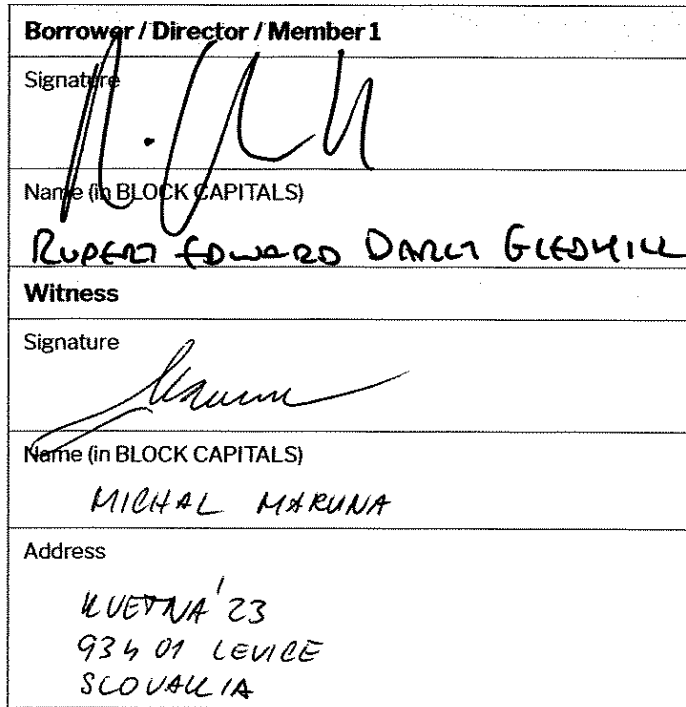 Borrower / Director / Member 1
Signature
Name (in BLOCK CAPITALS)
RUPERT EDWARD DARCY GLEDHILL
Witness
Signature
Name (in BLOCK CAPITALS)
MICHAL MARUNA
Address
KVETNÁ 23
934 01 LEVICE
SLOVAKIA